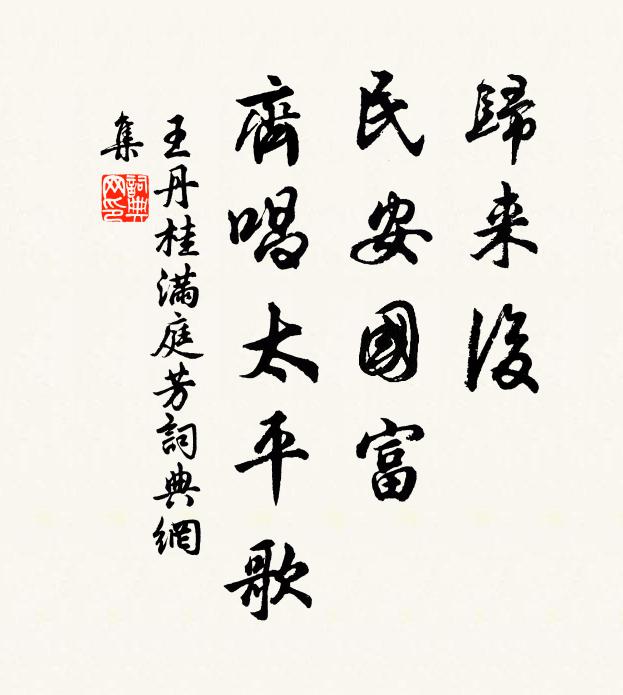 歸来後
民安國富
齊唱太平歌
王丹桂滿庭芳詞典網
集
詞典網印